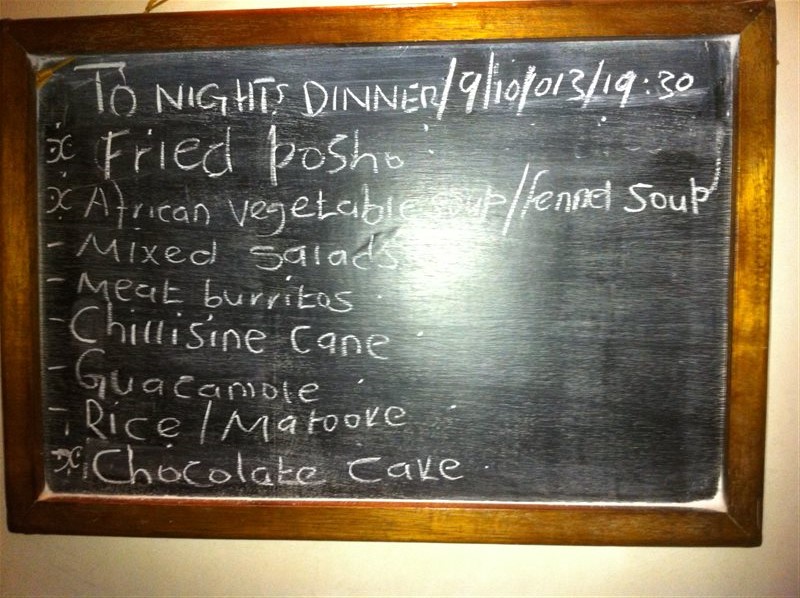 TO NIGHTS DINNER/9/10/013/19:30
Fried posho
African vegetable soup/fennel soup
- Mixed salads
- Meat burritos
- Chillisine Cane
- Guacamole
- Rice/Matooke
Chocolate cake